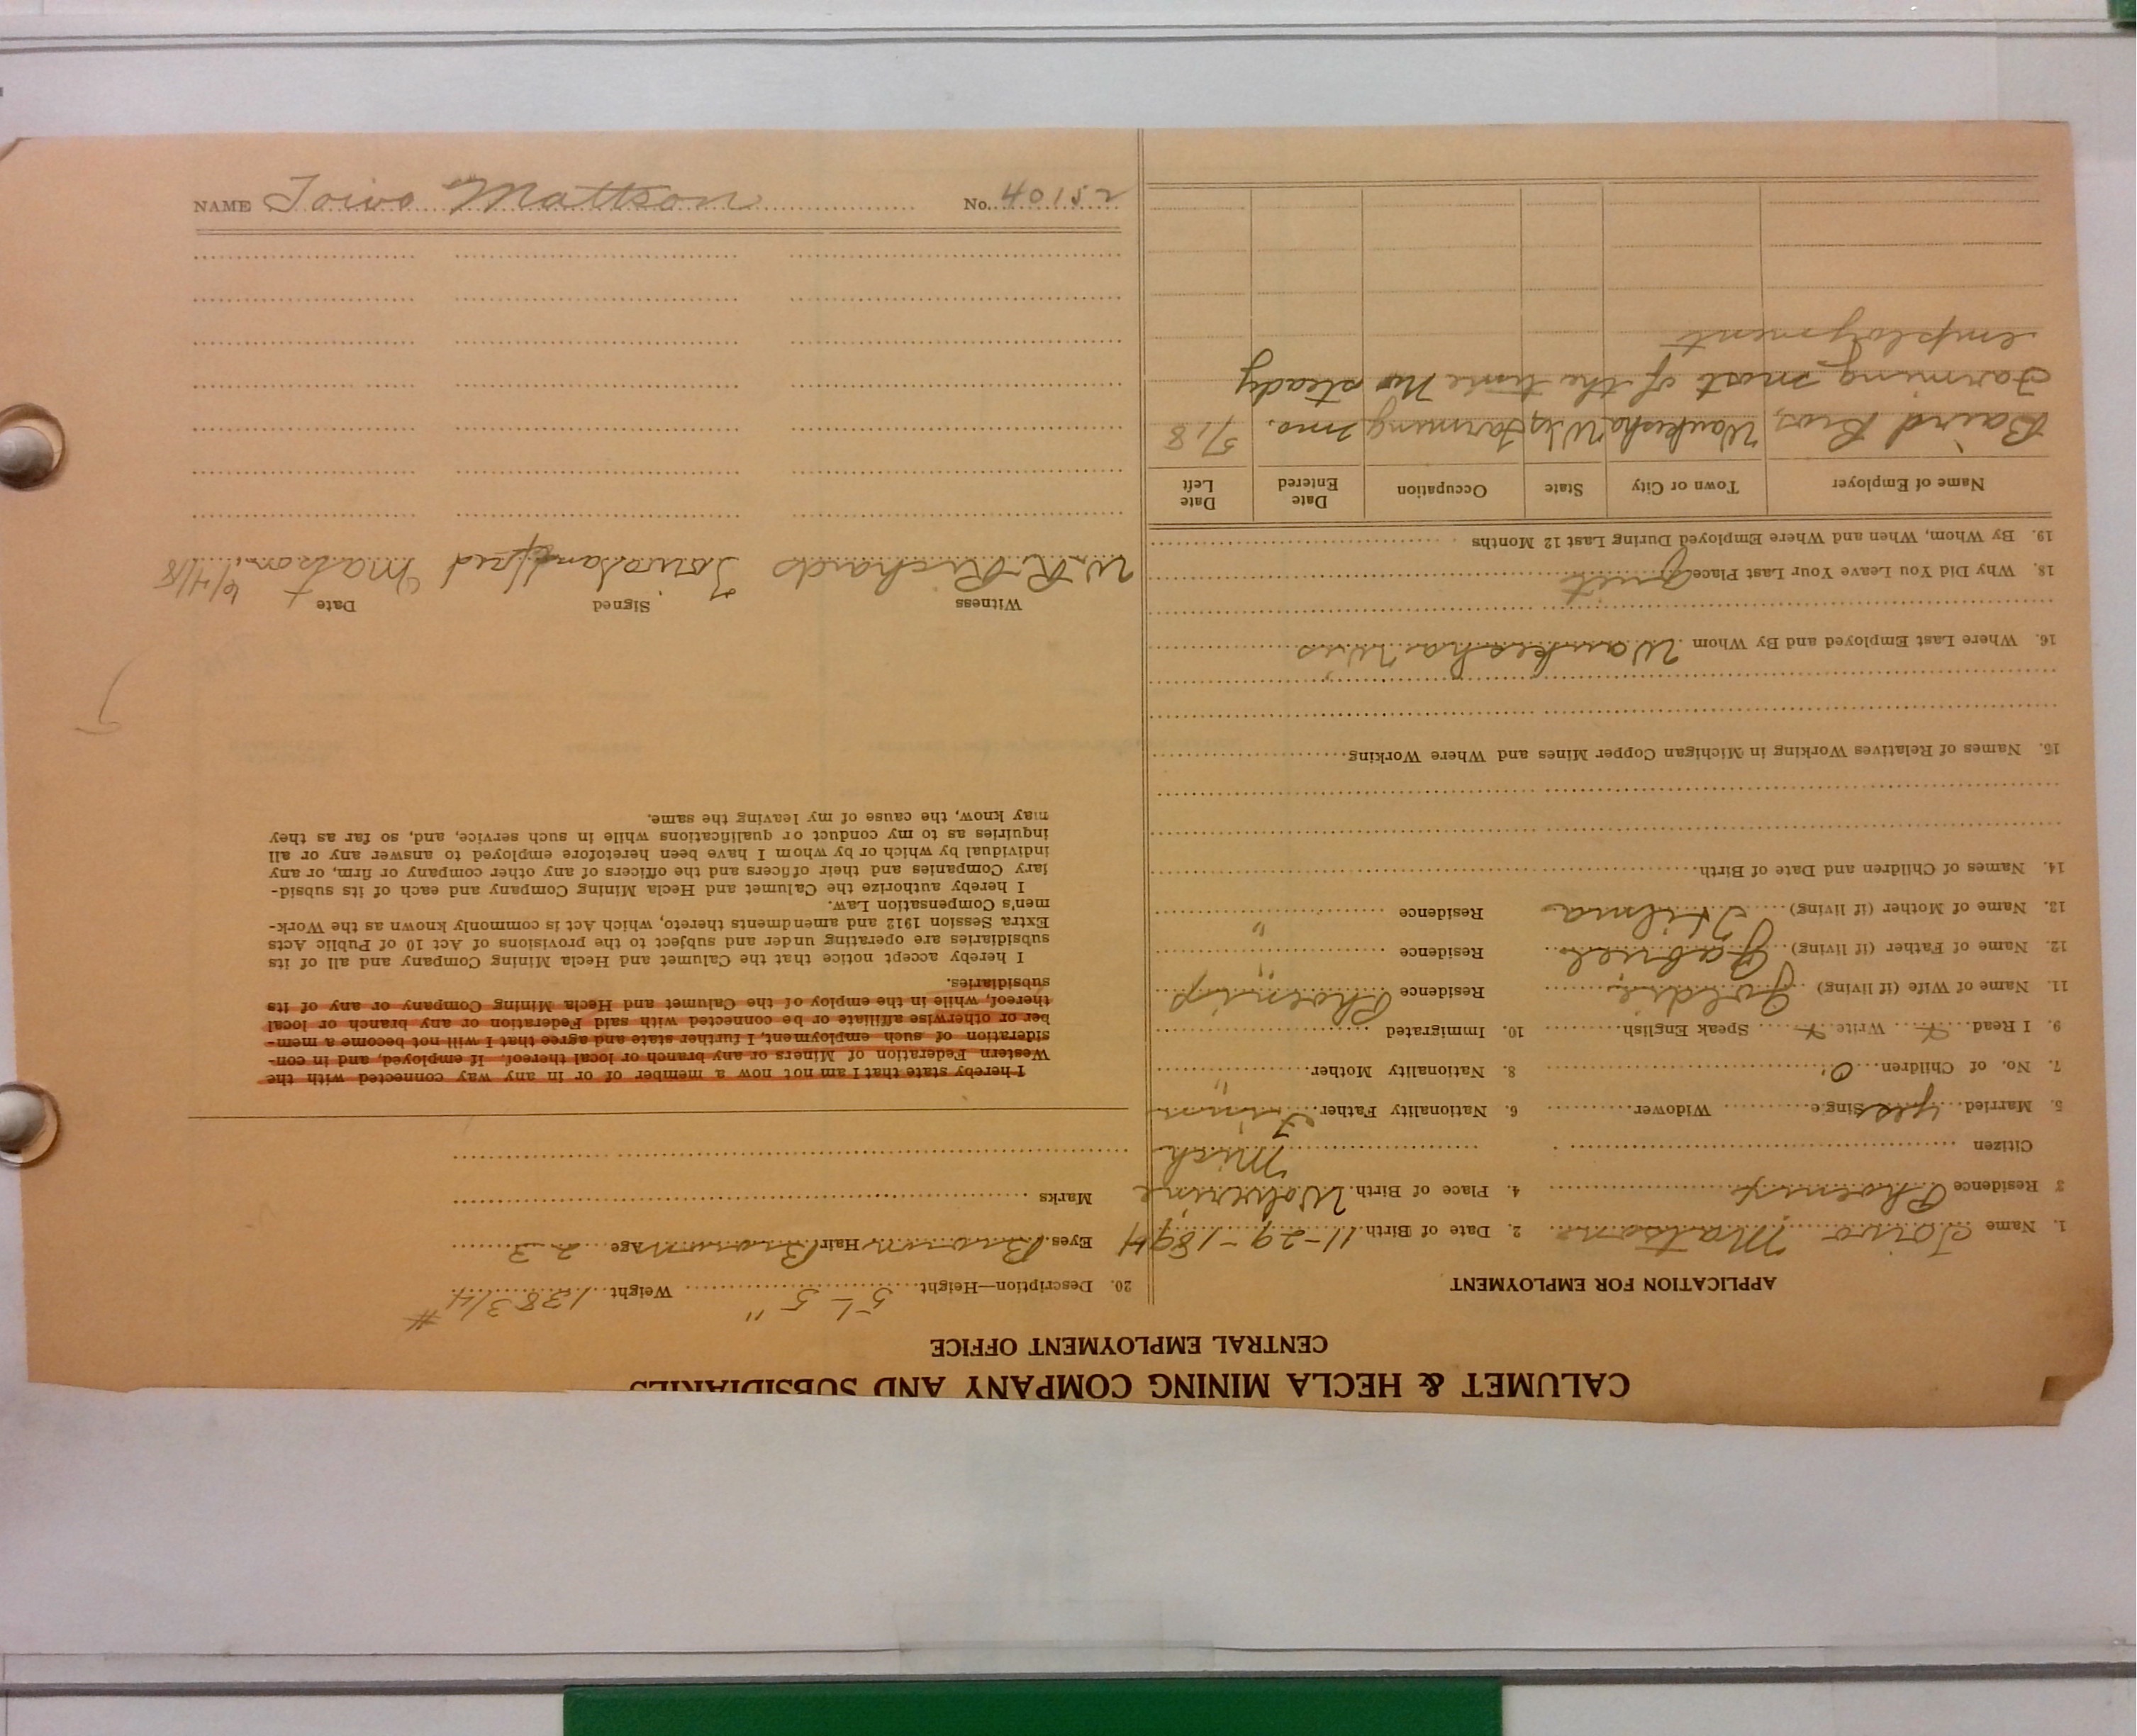 CALUMET & HECLA MINING COMPANY AND SUBSIDIARIES
CENTRAL EMPLOYMENT OFFICE
APPLICATION FOR EMPLOYMENT
1. Name Toivo Matson 2. Date of Birth 11-29-1894
3 Residence Phoenix 4. Place of Birth Wolverine
Citizen Mich
5. Married yes Single Widower 6. Nationality Father Finn
7. No. of Children 0 8. Nationality Mother "
9. I Read Write Speak English 10. Immigrated
11. Name of Wife (if living) Goldie Residence Phoenix
12. Name of Father (if living) Gabriel Residence "
13. Name of Mother (if living) Hilma Residence "
14. Names of Children and Date of Birth
15. Names of Relatives Working in Michigan Copper Mines and Where Working
16. Where Last Employed and By Whom Waukesha Wis
18. Why Did You Leave Your Last Place Quit
19. By Whom, When and Where Employed During Last 12 Months
Name of Employer Town or City State Occupation Date Entered Date Left
Baird Bros, Waukesha Wis Farming 2 mo. 5/18
Farming most of the time No steady
employment
20. Description—Height 5'-5" Weight 138 3/4 #
Eyes Brown Hair Brown Age 23
Marks
I hereby state that I am not now a member of or in any way connected with the
Western Federation of Miners or any branch or local thereof. If employed, and in con-
sideration of such employment, I further state and agree that I will not become a mem-
ber or otherwise affiliate or be connected with said Federation or any branch or local
thereof, while in the employ of the Calumet and Hecla Mining Company or any of its
subsidiaries.
I hereby accept notice that the Calumet and Hecla Mining Company and all of its
subsidiaries are operating under and subject to the provisions of Act 10 of Public Acts
Extra Session 1912 and amendments thereto, which Act is commonly known as the Work-
men's Compensation Law.
I hereby authorize the Calumet and Hecla Mining Company and each of its subsid-
iary Companies and their officers and the officers of any other company or firm, or any
individual by which or by whom I have been heretofore employed to answer any or all
inquiries as to my conduct or qualifications while in such service, and, so far as they
may know, the cause of my leaving the same.
Witness Signed Date
W. R. Richards Toivo Sandfred Matson 6/4/18
NAME Toivo Mattson No. 40152